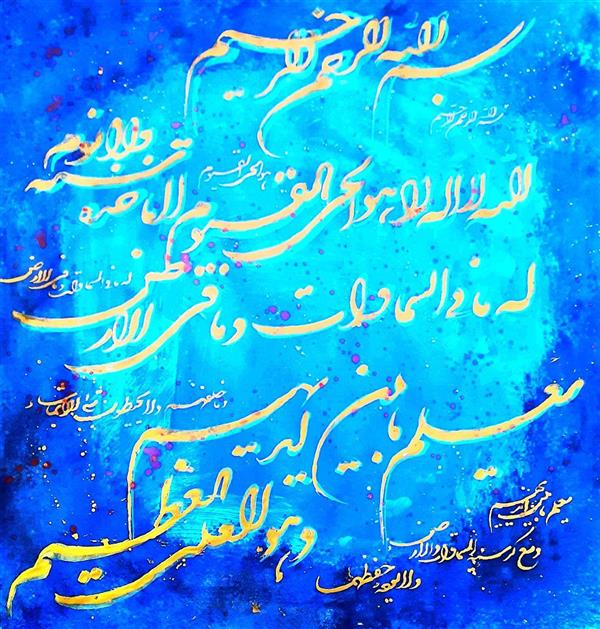 بسم الله الرحمن الرحیم
بسم الله الرحمن الرحیم
الله لا اله الا هو الحی القیوم لا تاخذه سنة ولا نوم
هو الحی القیوم
له ما فی السماوات وما فی الارض
له ما فی السماوات وما فی الارض
یعلم ما بین ایدیهم
وما خلفهم ولا یحیطون بشیء
یعلم ما بین ایدیهم
وسع کرسیه السماوات والارض
ولا یوده حفظهما
وهو العلی العظیم